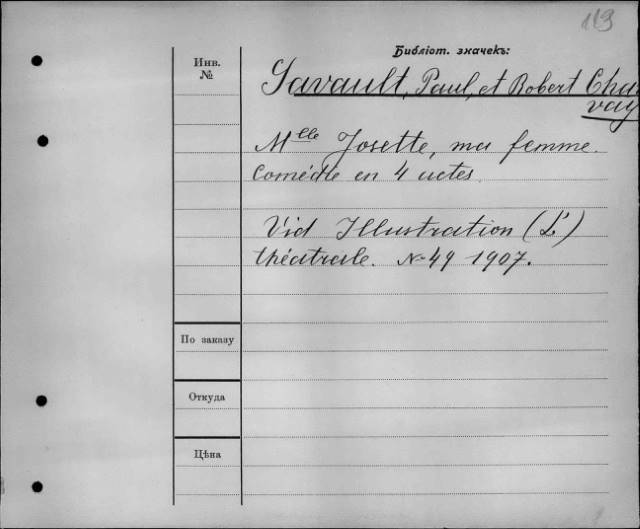 113
Библіот. значекъ:
Инв.
№
Gavault, Paul, et Robert Char
vay
Mlle Josette, ma femme.
Comédie en 4 actes.
Vid Illustration (L')
théâtrale. N-49 1907.
По заказу
Откуда
Цѣна